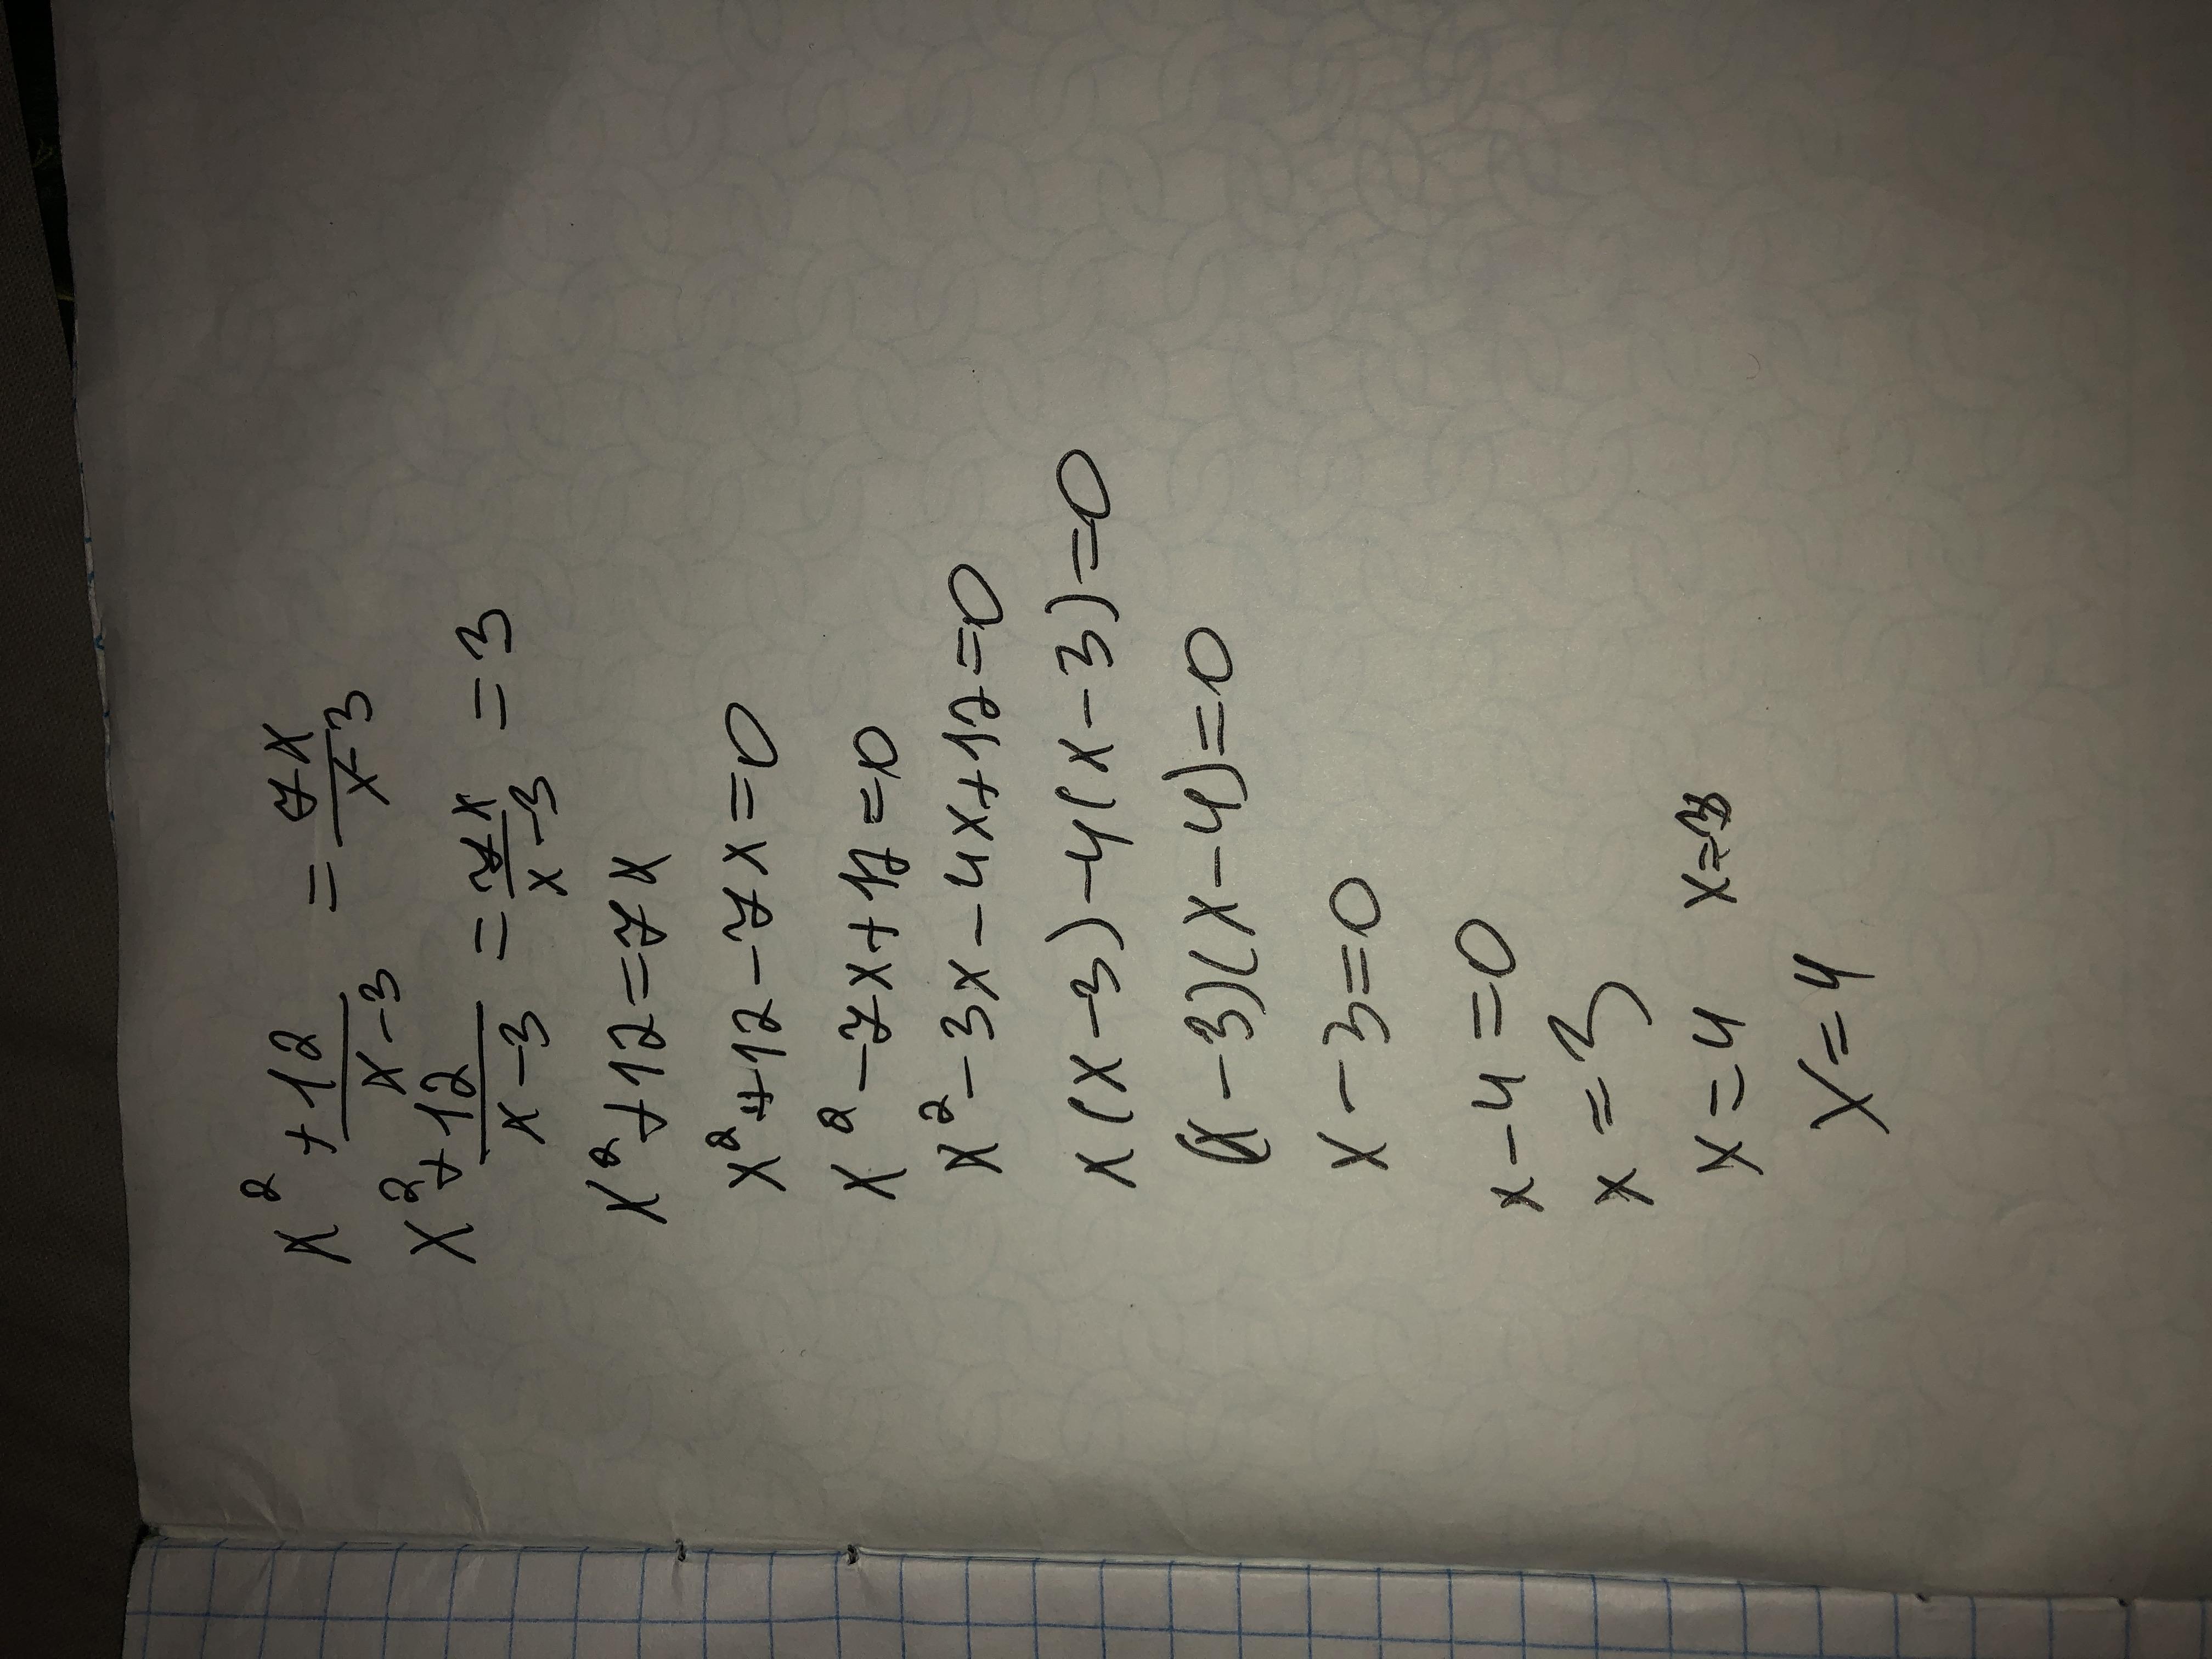 x² + 12/x-3 = 7x/x-3
x²+12/x-3 = 7x/x-3 = 3
x²+12=7x
x²+12-7x=0
x²-7x+12=0
x²-3x-4x+12=0
x(x-3)-4(x-3)=0
(x-3)(x-4)=0
x-3=0
x-4=0
x=3
x=4 x=3
x=4